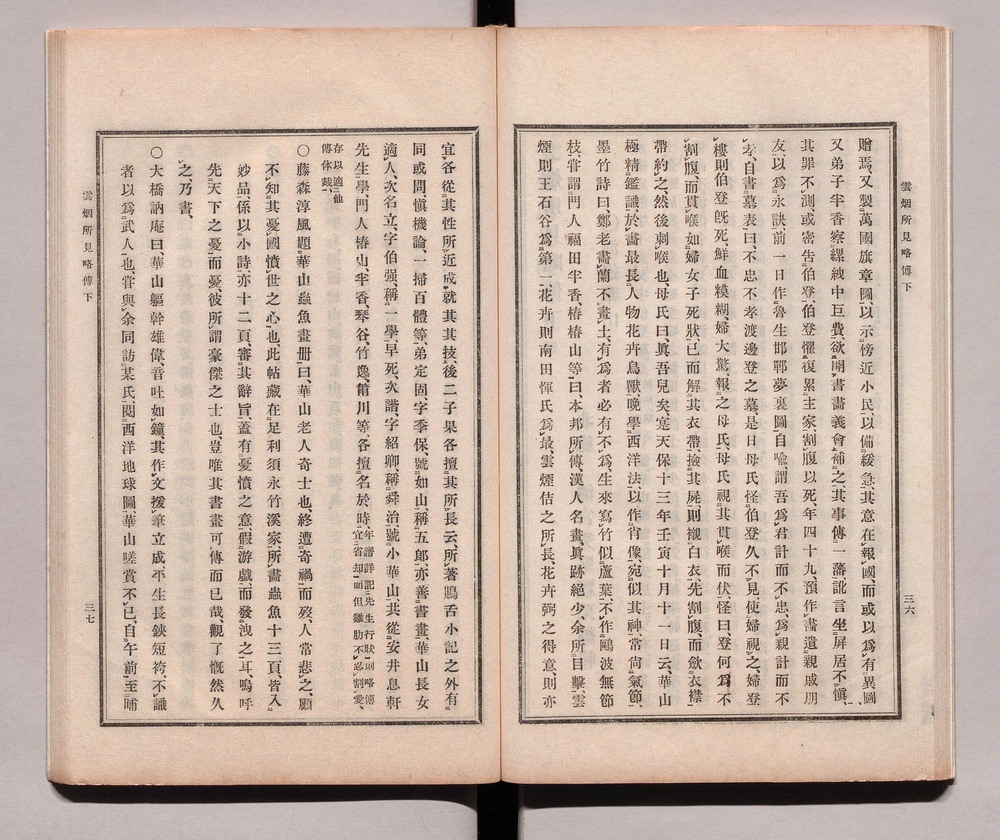 雲烟所見略傳下
三六
贈焉、又製萬國旗章圖、以示傍近小民、以備緩急、其意在報國、而或以爲有異圖
又弟子半香察縲絏中巨費、欲開書畫義會補之、其事傳一藩、訛言坐屏居不愼、
其罪不測、或密告伯登、伯登懼復累主家、割腹以死、年四十九、預作書遺親戚朋
友、以爲永訣、前一日作魯生邯鄲夢裏圖自喩、謂吾爲君計而不忠、爲親計而不
孝、自書墓表曰、不忠不孝渡邊登之墓、是日母氏怪伯登久不見、使婦視之、婦登
樓則伯登既死、鮮血糢糊、婦大驚、報之母氏、母氏視其貫喉而伏、怪曰、登何爲不
割腹、而貫喉如婦女子死狀、已而解其衣帶、撿其屍、則襯白衣、先割腹、而斂衣襟
帶約之、然後刺喉也、母氏曰、眞吾兒矣、寔天保十三年壬寅十月十一日云、華山
極精鑑識、於畫最長人物花卉鳥獸、晩學西洋法、以作肖像、宛似其神、常尙氣節、
墨竹詩曰、鄭老畵蘭不畫土、有爲者必有不爲、生來寫竹似蘆葉、不作鷗波無節
枝、甞謂門人福田半香、椿椿山等曰、本邦所傳漢人名畫、眞跡絕少、余所目擊、雲
煙則王石谷爲第一、花卉則南田惲氏爲最、雲煙佶之所長、花卉弼之得意、則亦
宜各從其性所近成就其其技、後二子果各擅其所長云、所著鴃舌小記之外有
同或問愼機論、一掃百體等、弟定固、字季保、號如山、稱五郎、亦善書畫、華山長女
適人、次名立、字伯强、稱一學、早死、次諧、字紹卿、稱舜治、號小華山、共從安井息軒
先生學、門人椿山、半香、琴谷、竹逸、顯川等各擅名於時、年譜詳記先生行狀、則略傳
宜省却、而但雞肋不忍割愛、
存以適他
傳休哉、
〇藤森淳風題華山蟲魚畫册曰、華山老人奇士也、終遭奇禍而歿、人常悲之、顧
不知其憂國憤世之心也、此帖藏在足利須永竹溪家、所畵蟲魚十三頁、皆入
妙品、係以小詩、亦十二頁、審其辭旨、蓋有憂憤之意、假游戲、而發洩之耳、嗚呼
先天下之憂、而憂彼所謂豪傑之士也、豈唯其書畫可傳而已哉、觀了慨然久
之、乃書、
〇大橋訥庵曰、華山軀幹雄偉、音吐如鐘、其作文援筆立成、平生長鋏短袴、不識
者以爲武人也、甞與余同訪某氏、閱西洋地球圖、華山嗟賞不已、自午前至晡
雲烟所見略傳下
三七